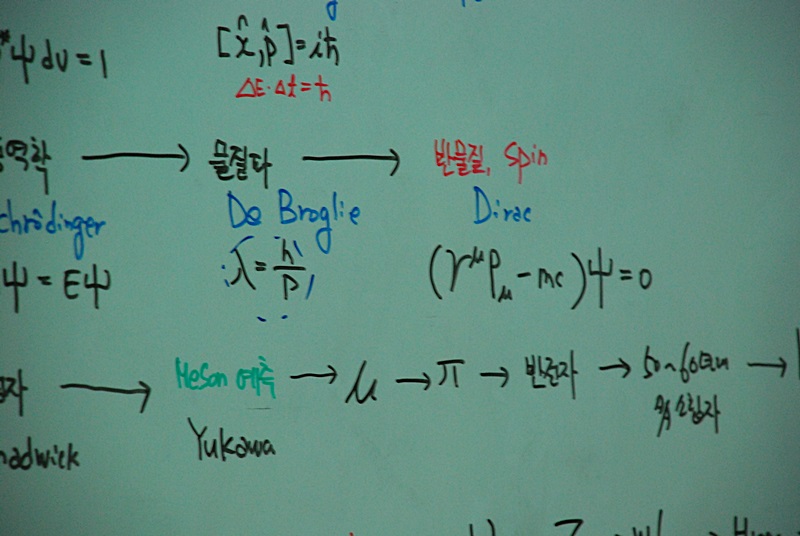 ψ dv = 1
[x̂, p̂] = iħ
ΔE·Δt = ħ
역학 → 물질파 → 반물질, Spin
chrödinger De Broglie Dirac
ψ = Eψ λ = h/p (γ^μ P_μ - mc)ψ = 0
자 → Meson 예측 → μ → π → 반전자 → 50~60년대 →
adwick Yukawa